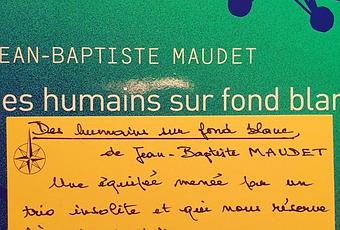 EAN-BAPTISTE MAUDET
es humains sur fond blan
Des humains sur fond blanc,
de Jean-Baptiste MAUDET
Une équipée menée par un
trio insolite et qui nous réserve